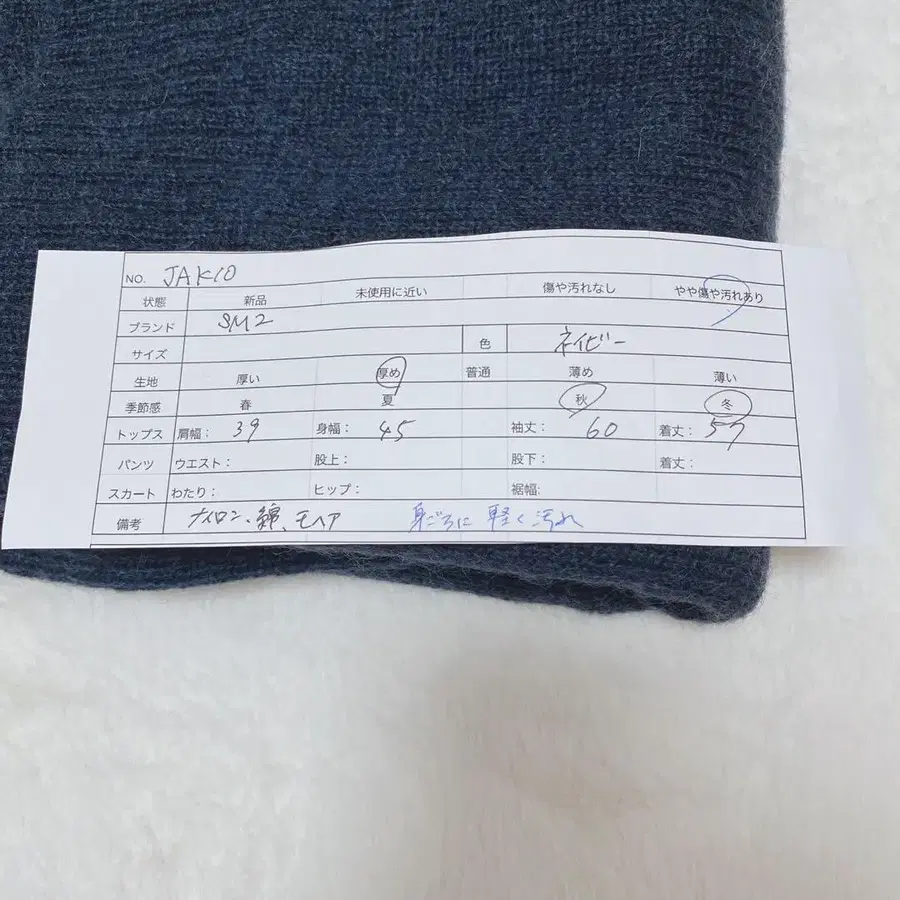 NO. JAK10
状態 新品 未使用に近い 傷や汚れなし やや傷や汚れあり
ブランド SM2
サイズ 色 ネイビー
生地 厚い 厚め 普通 薄め 薄い
季節感 春 夏 秋 冬
トップス 肩幅: 39 身幅: 45 袖丈: 60 着丈: 57
パンツ ウエスト: 股上: 股下: 着丈:
スカート わたり: ヒップ: 裾幅:
備考 ナイロン、綿、モヘア 身ごろに軽く汚れ